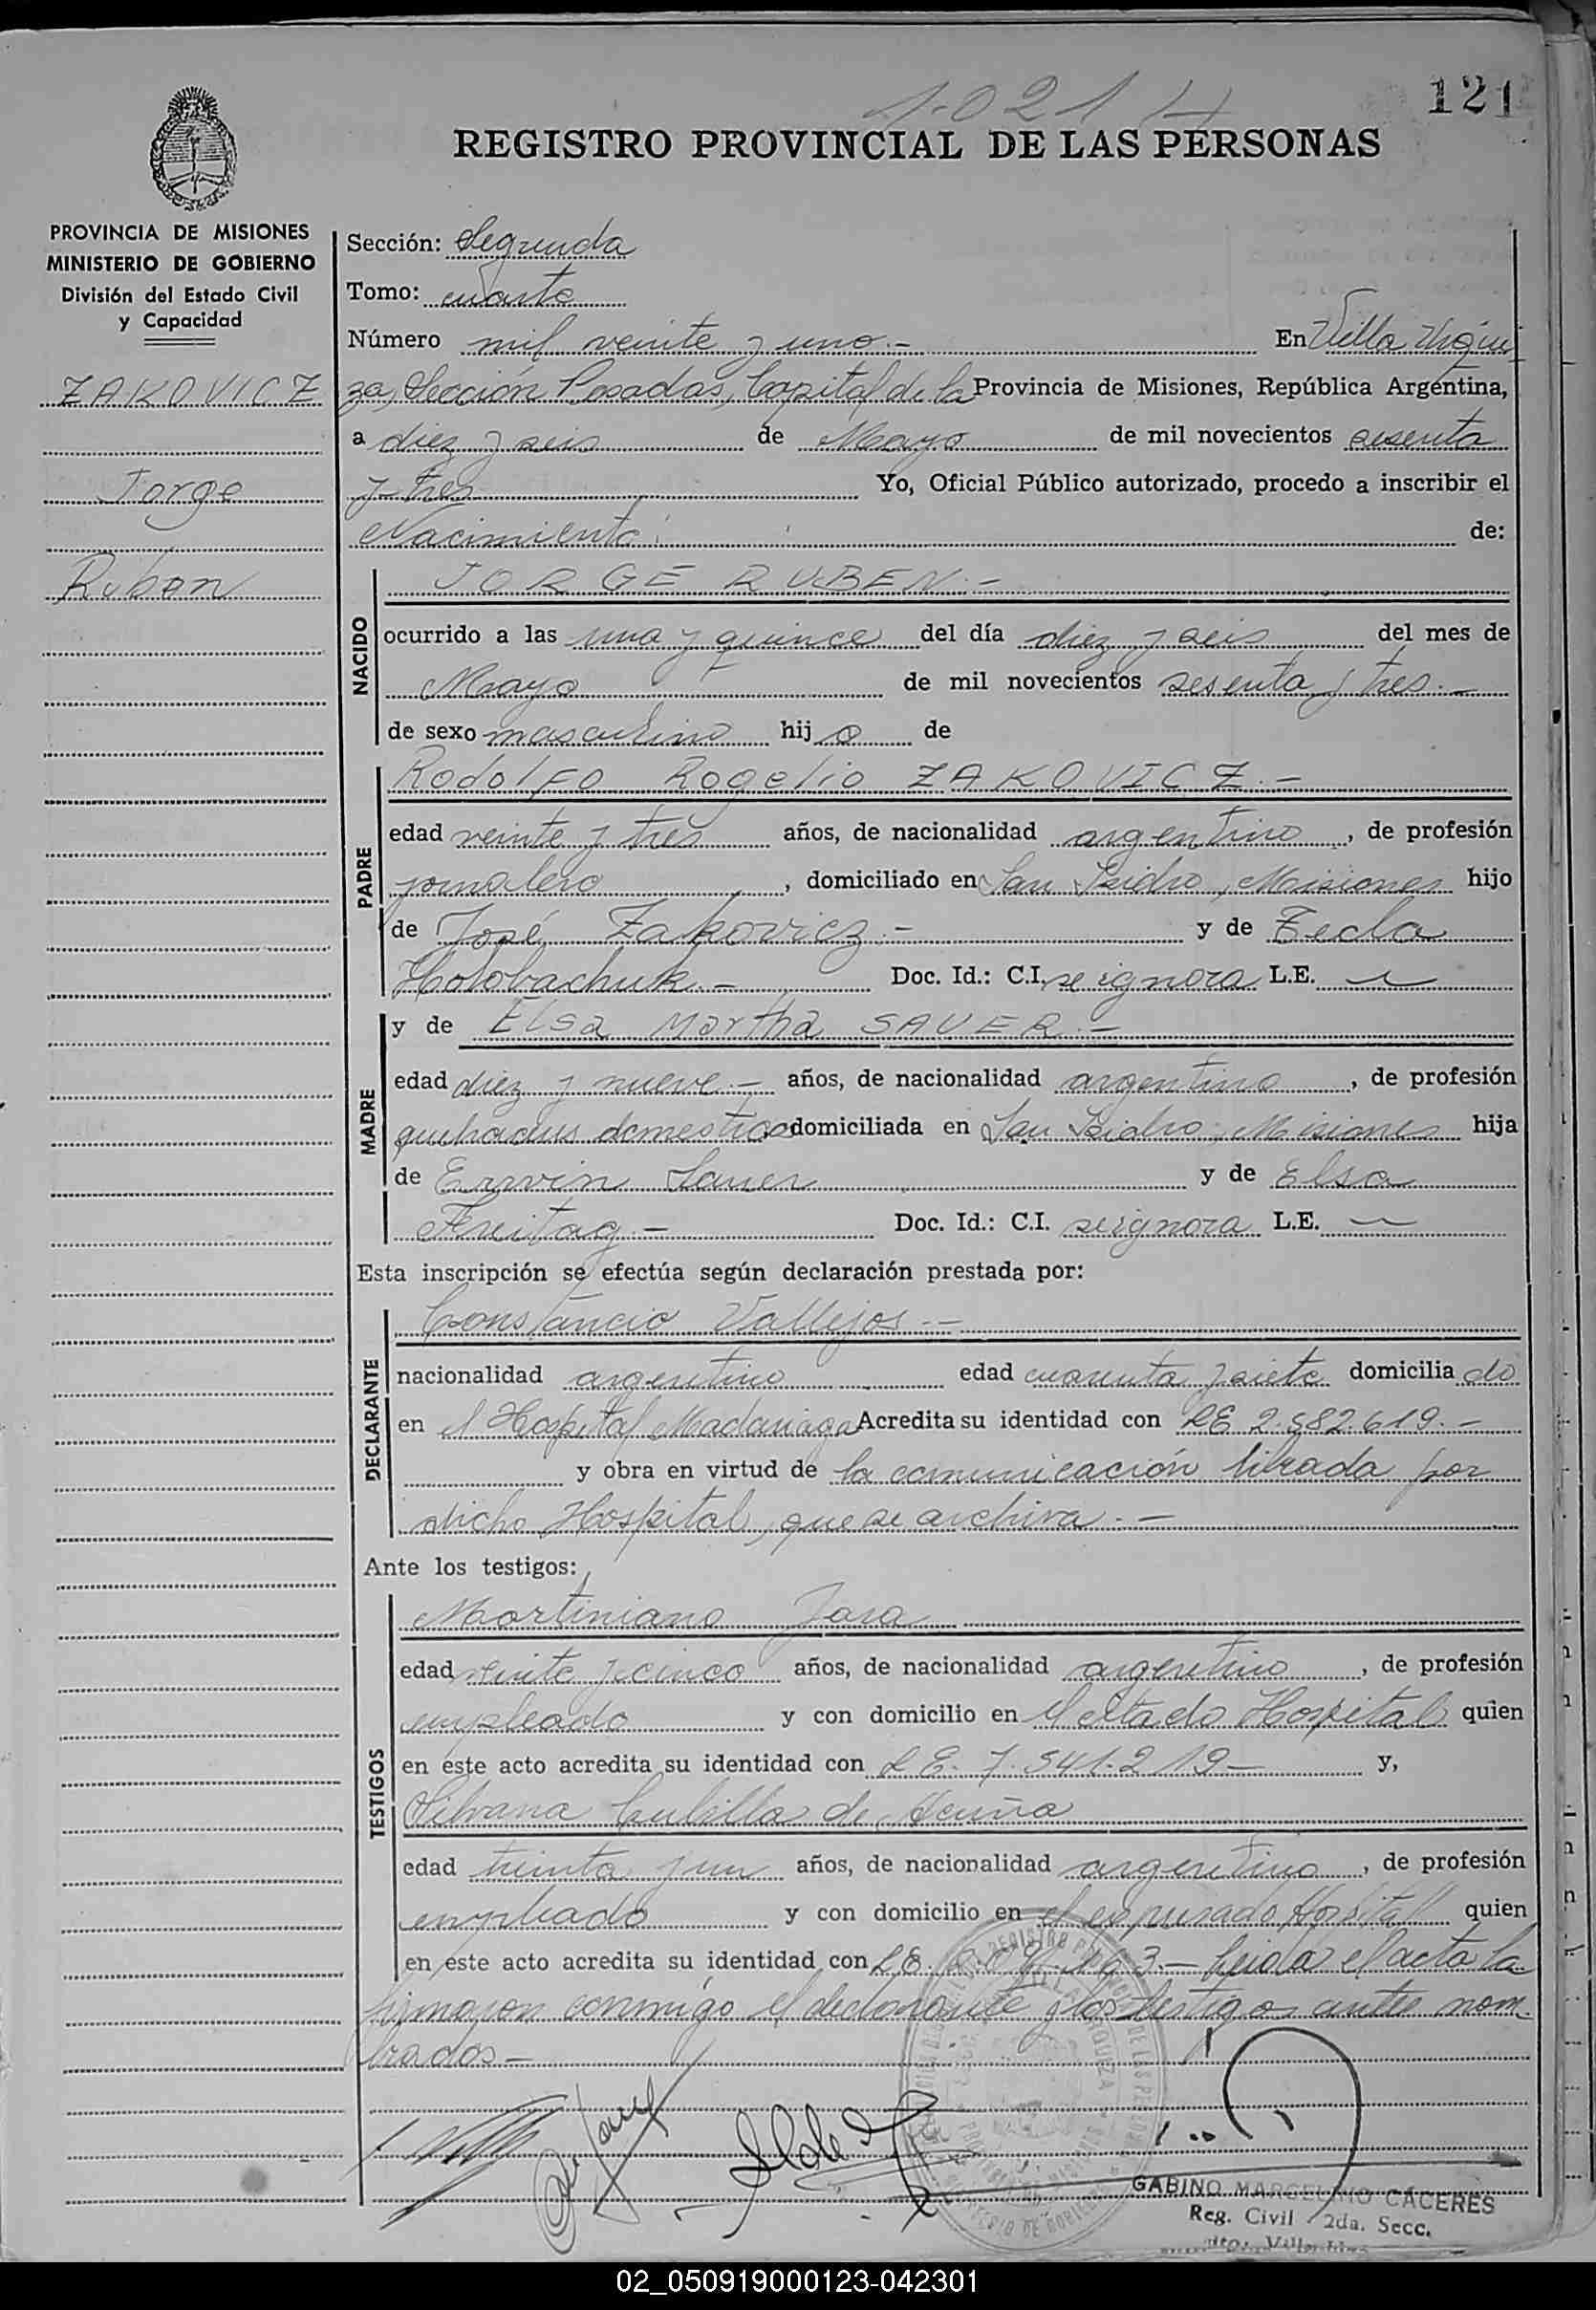 1021
121
REGISTRO PROVINCIAL DE LAS PERSONAS
PROVINCIA DE MISIONES
MINISTERIO DE GOBIERNO
División del Estado Civil
y Capacidad
ZAKOVICZ
Jorge
Ruben
Sección: Segunda
Tomo: cuarto
Número mil veinte y uno.- En Villa Urqui
za, Sección Posadas, Capital de la Provincia de Misiones, República Argentina,
a diez y seis de Mayo de mil novecientos sesenta
y tres Yo, Oficial Público autorizado, procedo a inscribir el
Nacimiento de:
NACIDO
JORGE RUBEN.-
ocurrido a las una y quince del día diez y seis del mes de
Mayo de mil novecientos sesenta y tres.-
de sexo masculino hijo de
PADRE
Rodolfo Rogelio ZAKOVICZ.-
edad veinte y tres años, de nacionalidad argentino, de profesión
jornalero, domiciliado en San Isidro, Misiones hijo
de José Zakovicz.- y de Tecla
Holobachuk.- Doc. Id.: C.I. se ignora L.E.
MADRE
y de Elsa Martha SAUER.-
edad diez y nueve.- años, de nacionalidad argentina, de profesión
quehaceres domesticos domiciliada en San Isidro, Misiones hija
de Erwin Sauer y de Elsa
Freitag.- Doc. Id.: C.I. se ignora L.E.
Esta inscripción se efectúa según declaración prestada por:
DECLARANTE
Constancio Vallejos.-
nacionalidad argentino edad cuarenta y siete domiciliado
en el Hospital Madariaga Acredita su identidad con LE 2.582.619.-
y obra en virtud de la comunicación librada por
dicho Hospital, que se archiva.-
Ante los testigos:
TESTIGOS
Martiniano Jara
edad veinte y cinco años, de nacionalidad argentino, de profesión
empleado y con domicilio en el citado Hospital quien
en este acto acredita su identidad con LE. 7.541.219- y,
Silvana Cubilla de Acuña
edad treinta y un años, de nacionalidad argentino, de profesión
empleado y con domicilio en el expresado Hospital quien
en este acto acredita su identidad con LE. Leida el acta la
firmaron conmigo el declarante y los testigos antes nom-
brados-
GABINO MARCELINO CÁCERES
Reg. Civil 2da. Secc.
02_050919000123-042301